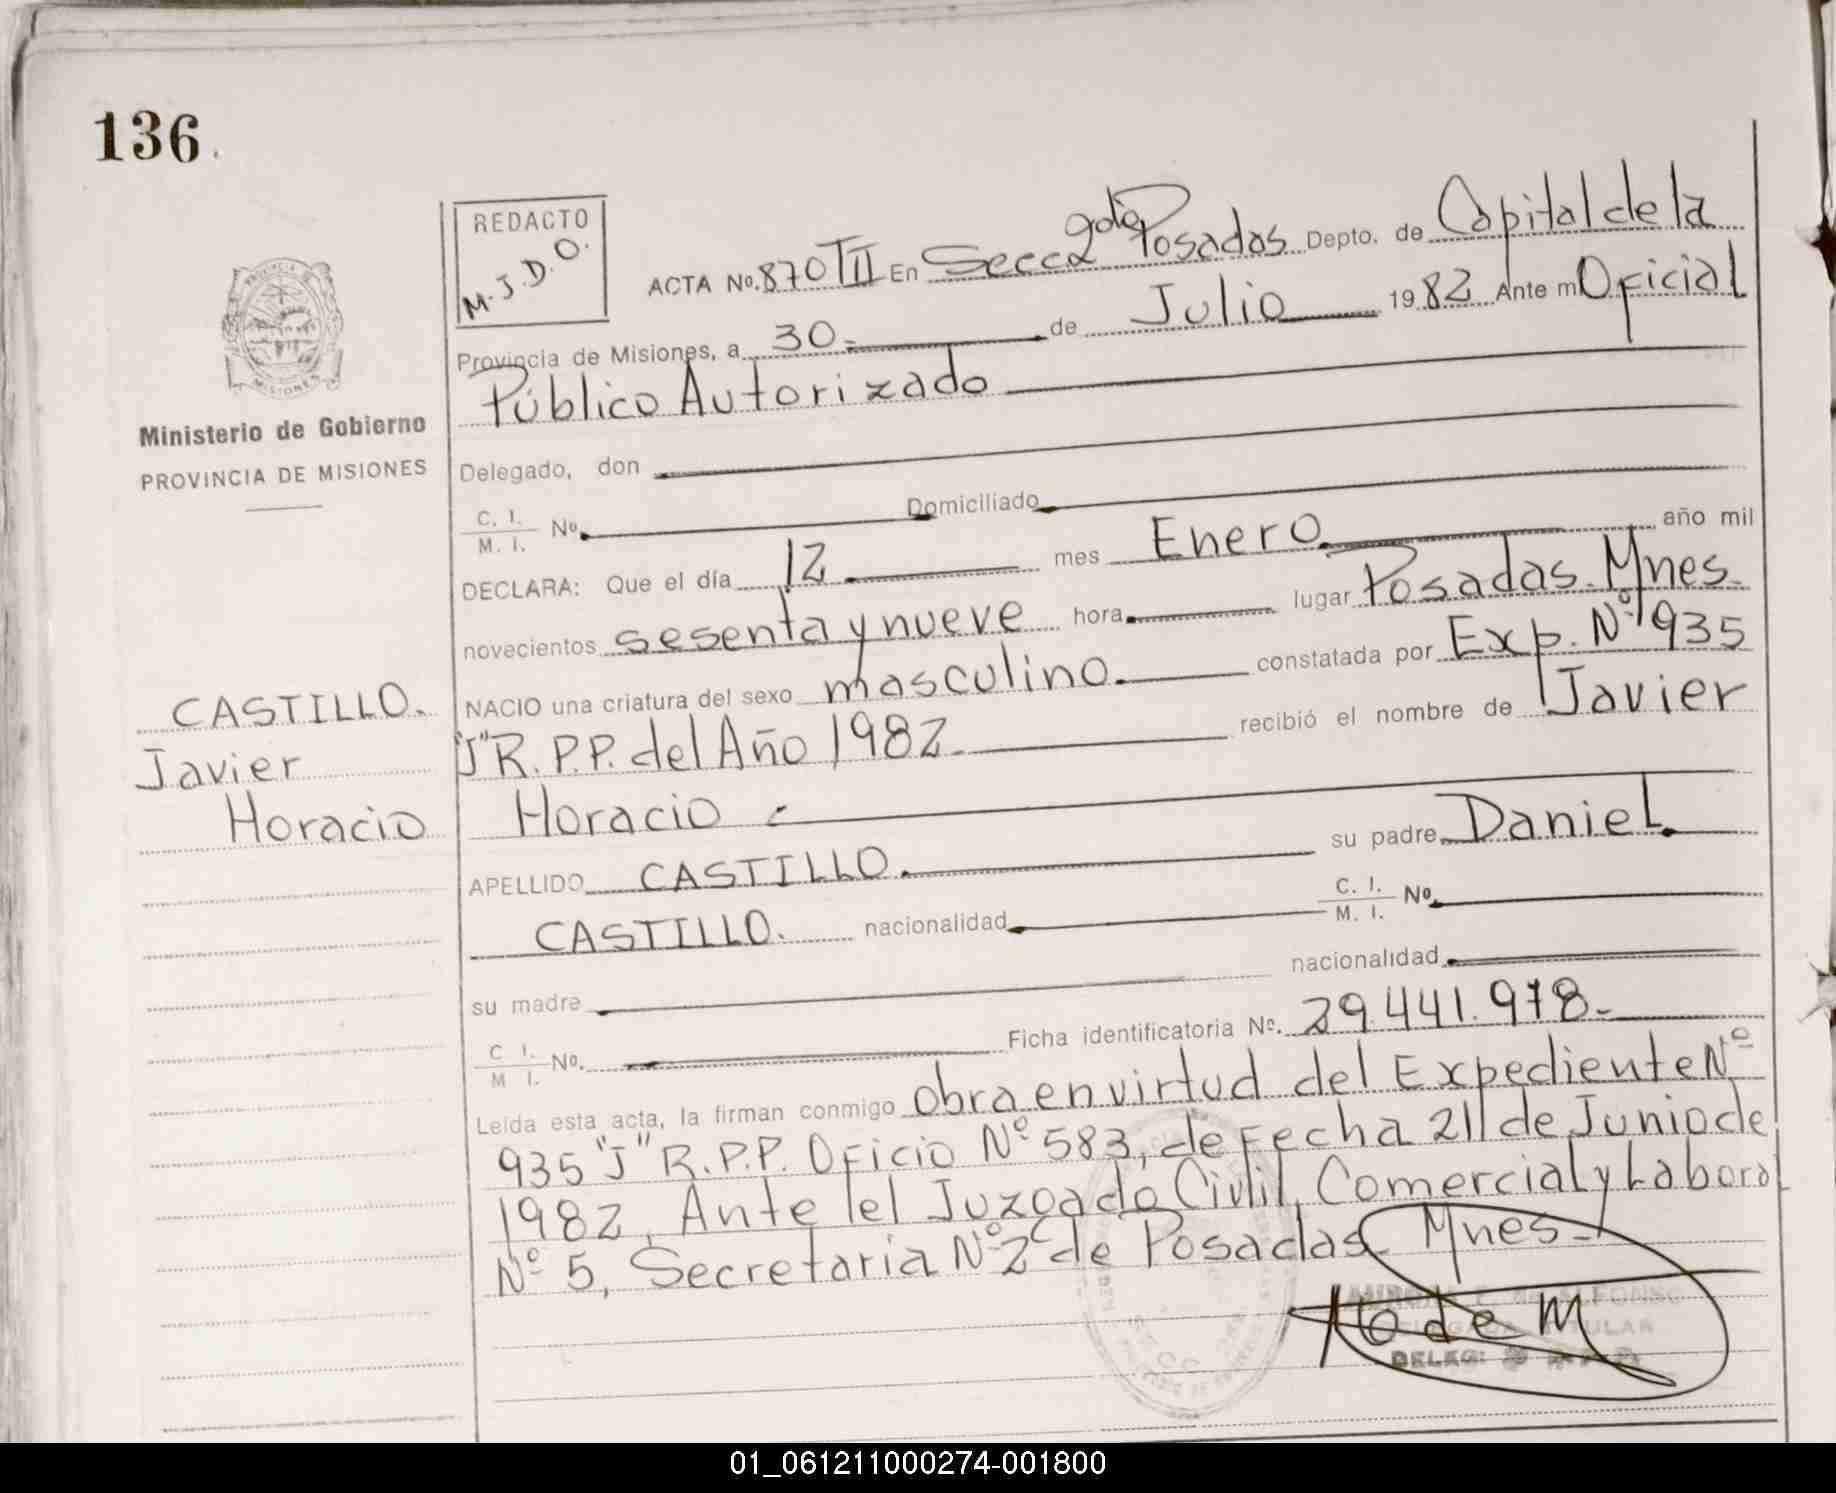 136.
REDACTO
M.J.D.O.
ACTA No. 870 TII En Secc 2 gda Posadas Depto. de Capital de la
Provincia de Misiones, a 30.- de Julio 1982 Ante mí Oficial
Público Autorizado
Ministerio de Gobierno
PROVINCIA DE MISIONES
Delegado, don
C. I. / M. I. No. Domiciliado
DECLARA: Que el día 12 mes Enero año mil
novecientos sesenta y nueve hora lugar Posadas. Mnes.
NACIO una criatura del sexo masculino constatada por Exp. Nº 935
"J" R.P.P. del Año 1982 recibió el nombre de Javier
Horacio
CASTILLO.
Javier
Horacio
APELLIDO CASTILLO. su padre Daniel
CASTILLO. nacionalidad C. I. / M. I. No.
su madre nacionalidad
C I. / M I. No. Ficha identificatoria No. 29.441.978.-
Leída esta acta, la firman conmigo obra en virtud del Expediente Nº
935 "J" R.P.P. Oficio Nº 583, de Fecha 21 de Junio de
1982, Ante el Juzgado Civil, Comercial y Laboral
Nº 5, Secretaria Nº 2 de Posadas Mnes-
01_061211000274-001800